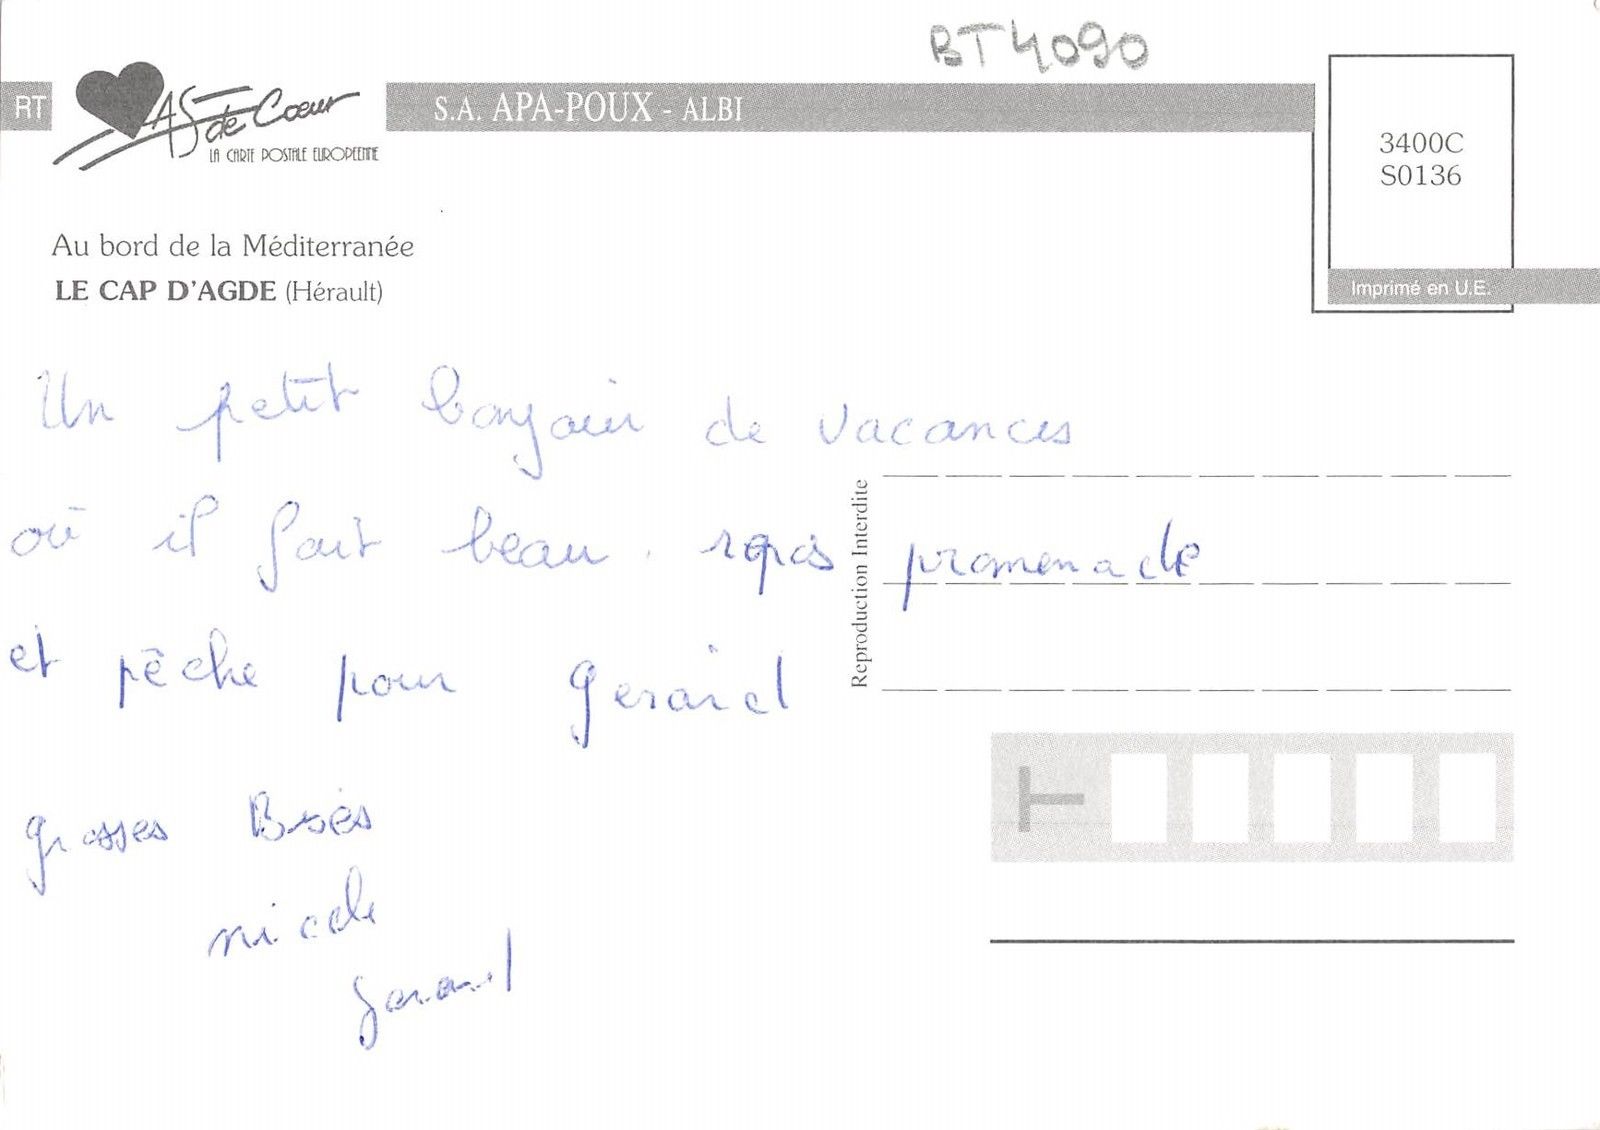 BT4090
RT
AS de Cœur
LA CARTE POSTALE EUROPEENNE
S.A. APA-POUX - ALBI
3400C
S0136
Imprimé en U.E.
Au bord de la Méditerranée
LE CAP D'AGDE (Hérault)
Un petit bonjour de vacances
où il fait beau. repas promenade
et pêche pour Gerard
grosses Bises
Gerard
Reproduction Interdite
T